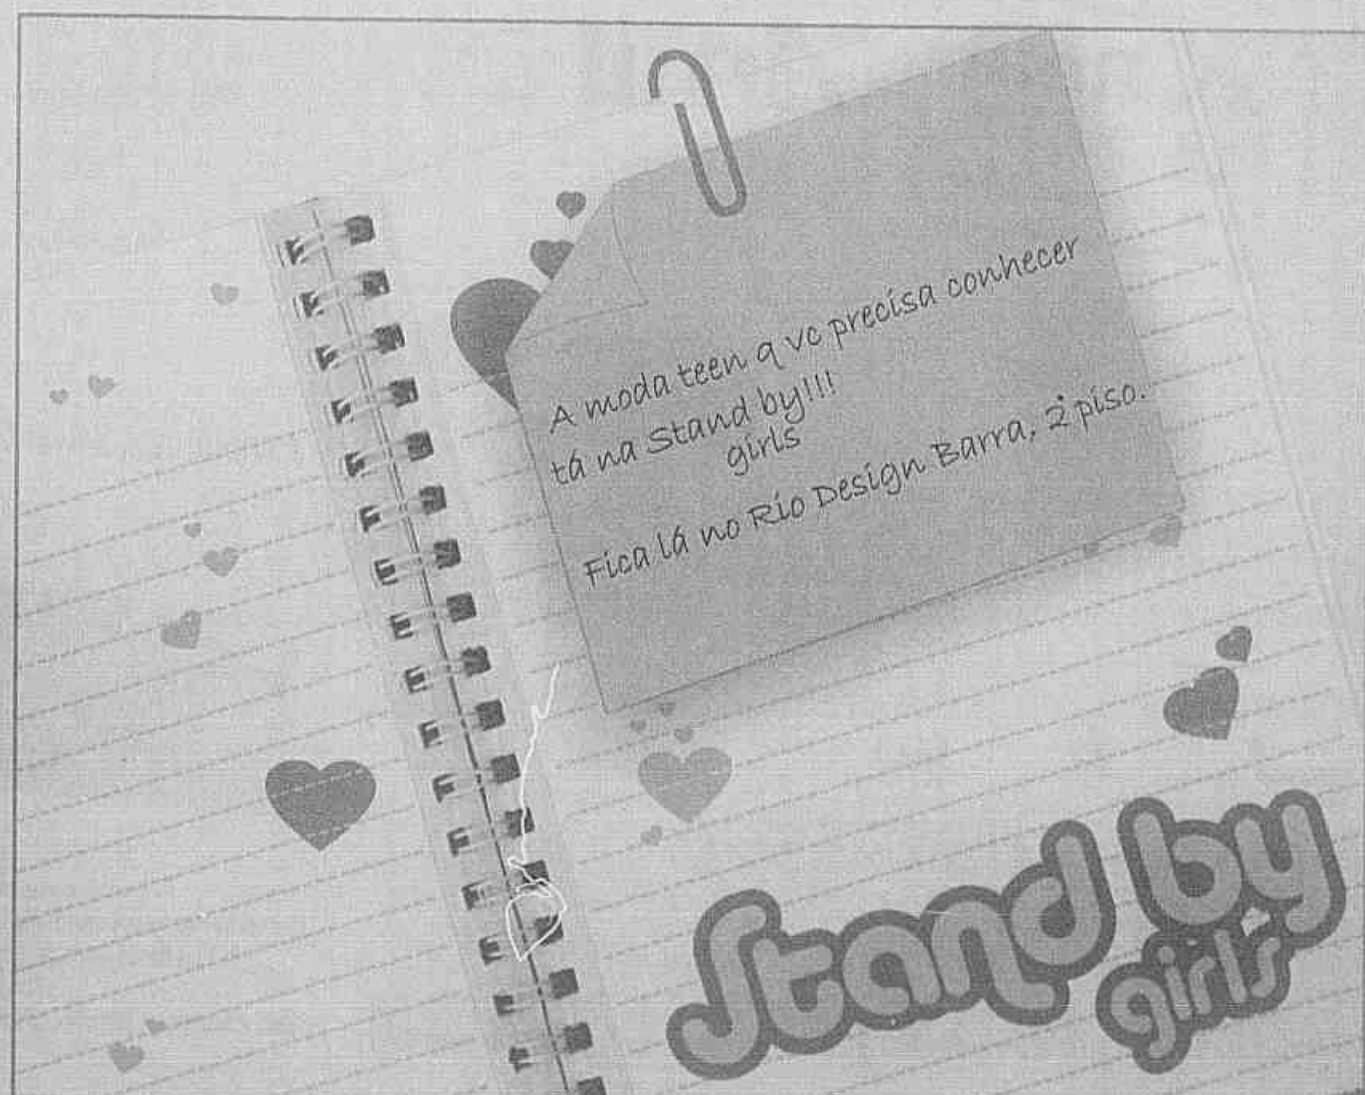 A moda teen q vc precisa conhecer
tá na Stand by!!!
girls
Fica lá no Rio Design Barra, 2° piso.
Stand by
girls